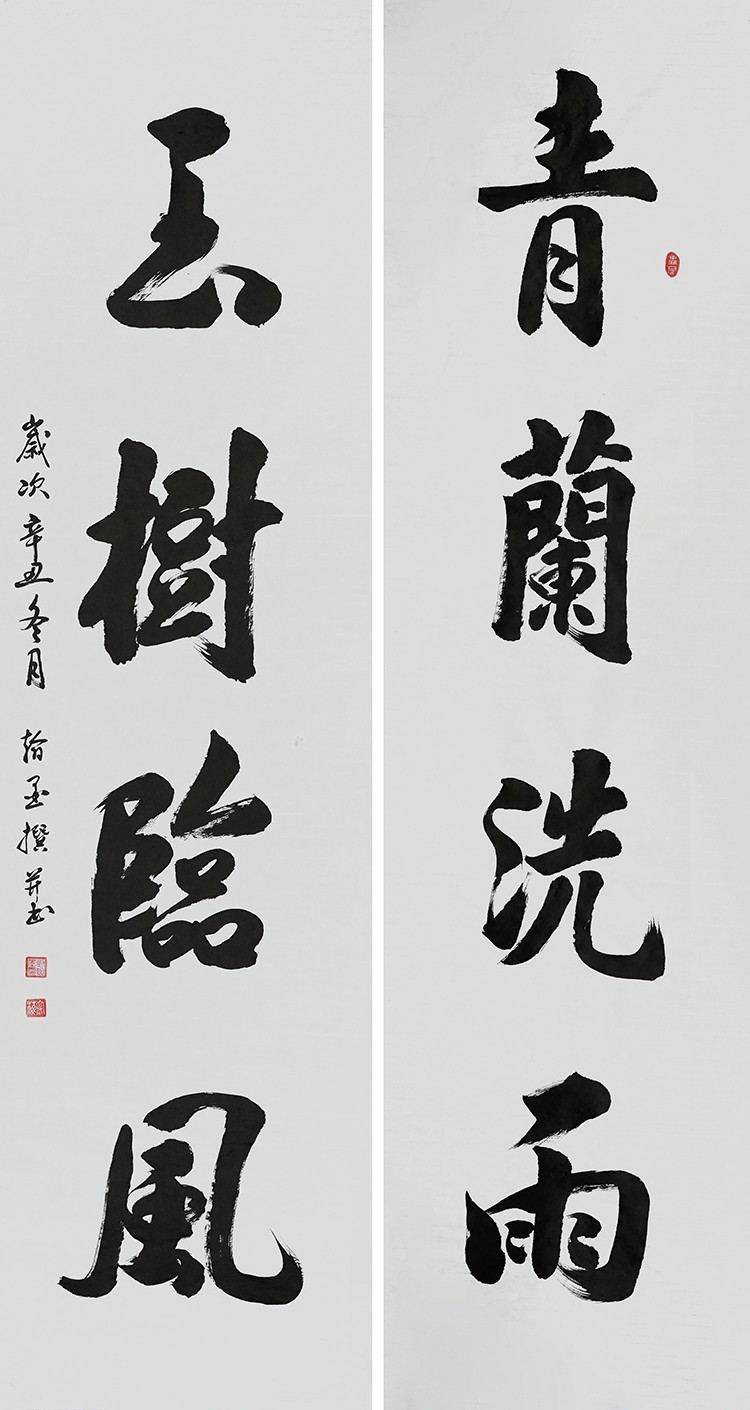 青蘭洗雨
玉樹臨風
歲次辛丑冬月 翰墨撰并书